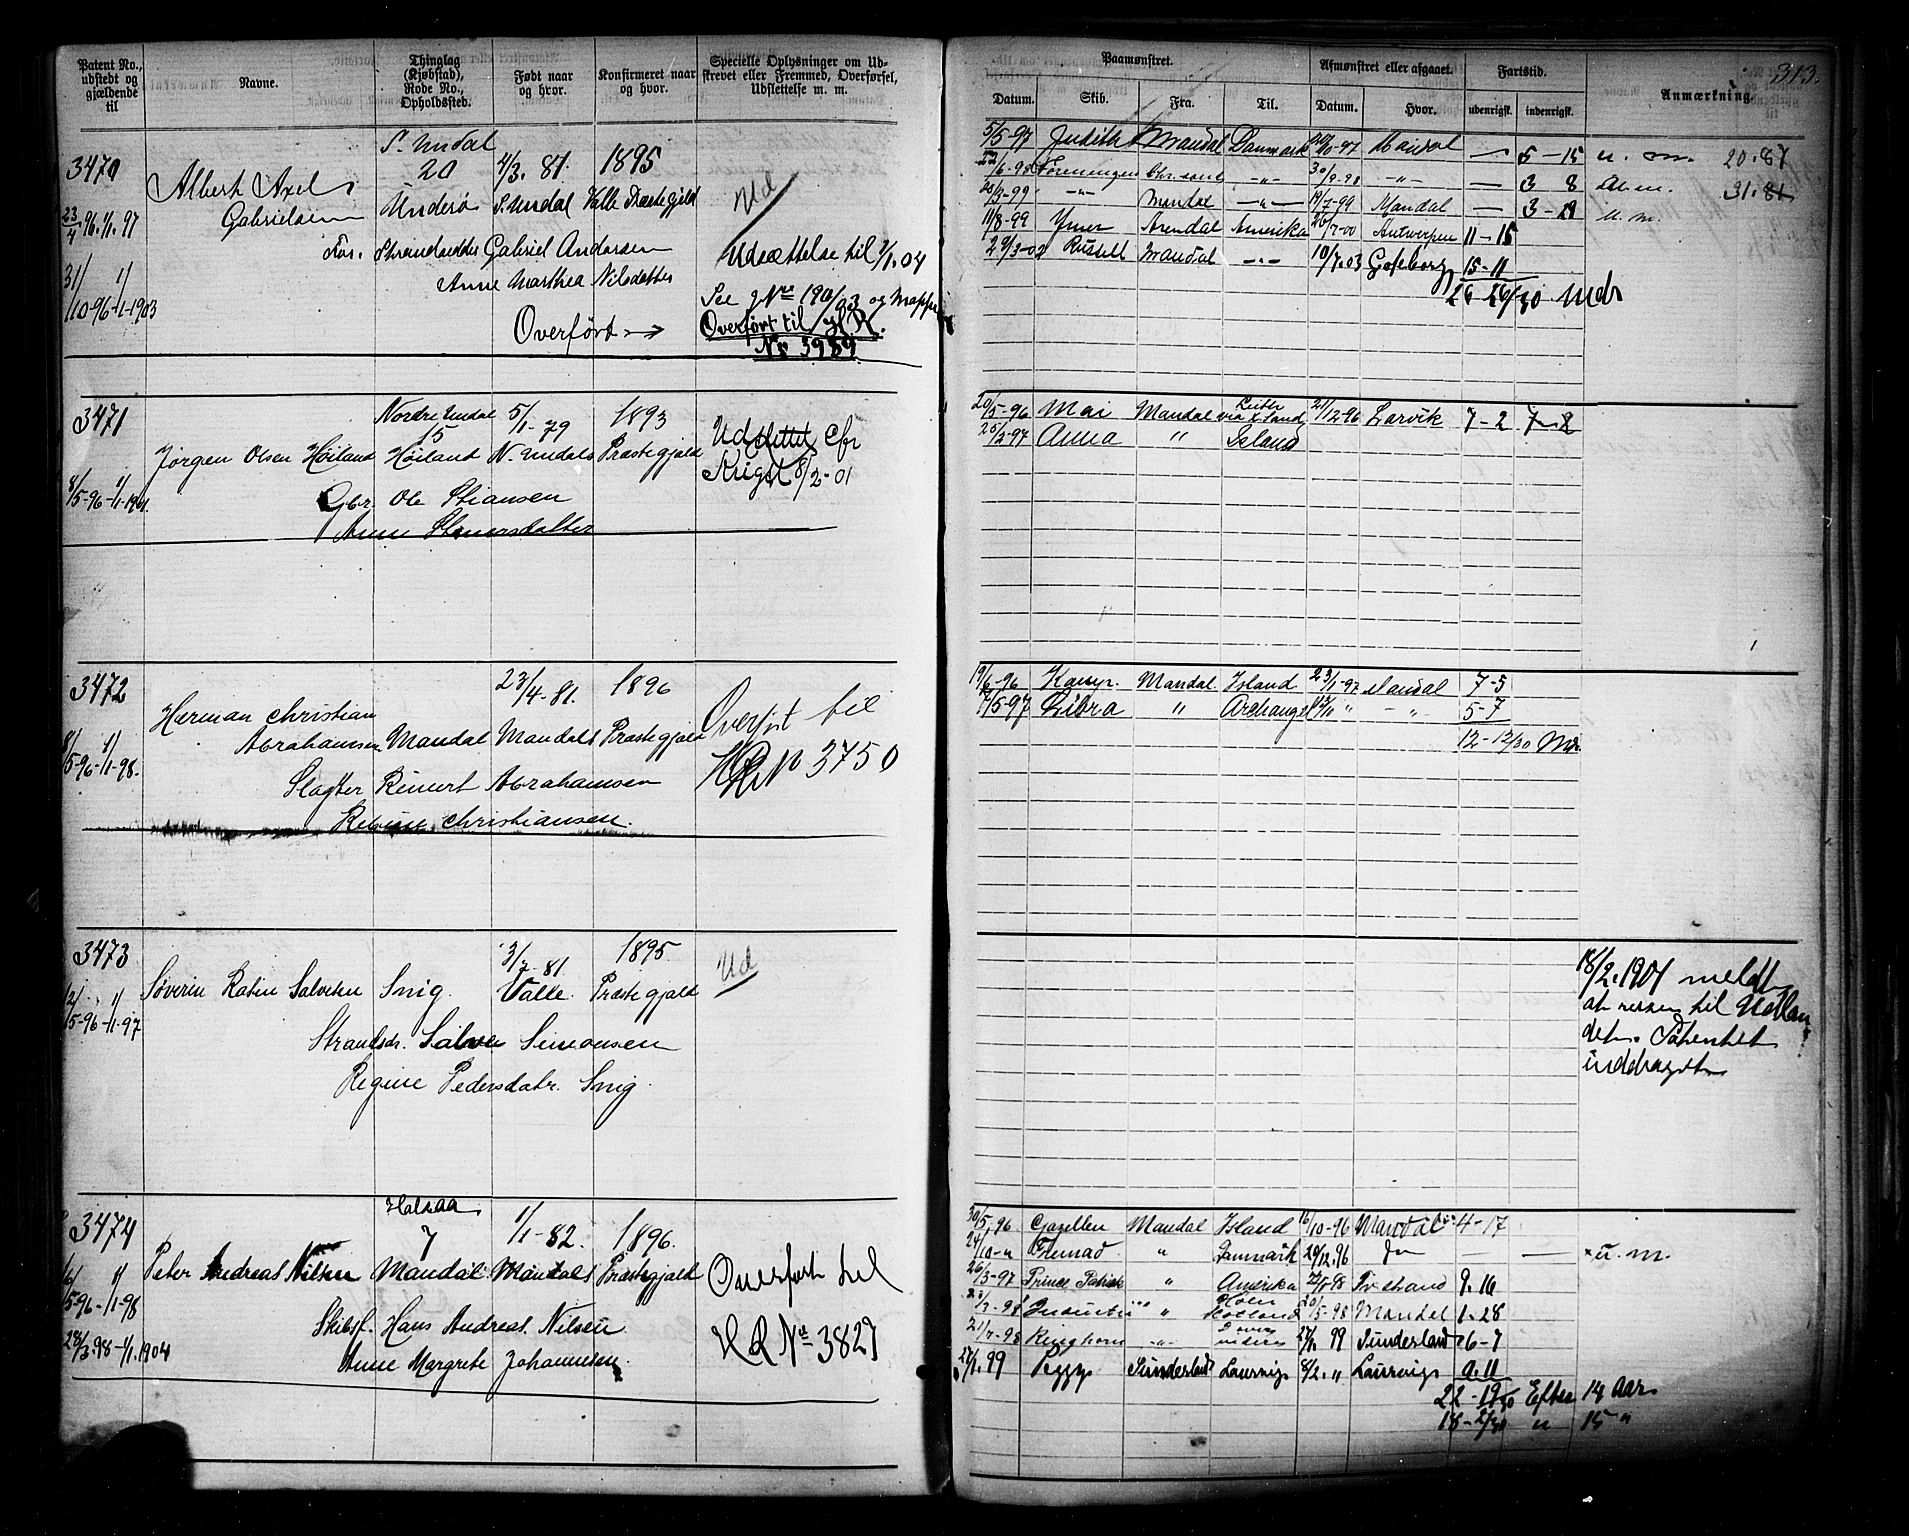 313.
Patent No., udstedt og gjældende til
Navne.
Thinglag (Kjøbstad), Rode No., Opholdssted.
Født naar og hvor.
Konfirmeret naar og hvor.
Specielle Oplysninger om Udskrevet eller Fremmed, Overførsel, Udslettelse m. m.
Paamønstret.
Afmønstret eller afgaaet.
Fartstid.
Anmærkning.
Datum. Skib. Fra. Til. Datum. Hvor. udenrigsk. indenrigsk.
3470
S. Undal
20 4/3. 81. 1895
Albert Axel
Gabrielsen Underø S. Undal Valle Præstegjeld
Ud
23/4 96. 1/1. 97
For. Strandsidder Gabriel Andersen
Anne Marthea Nilsdatter
Udsættelse til 1/1. 04
31/10-96-1/1-1903
Se No 190/03 og Mappe
Overført →
Overført til HR.
No 3989
5/5-97 Judith Mandal Danmark Mandal — 5-15 u. m. 20.87
/6-98 Foreningen Chr.sand -"- 30/9-98 -"- — 3 8 31.81
/3-99 -"- Mandal -"- 19/7-99 Mandal — 3-19 u. m.
11/8-99 Ymer Arendal Amerika 26/7-00 Antwerpen 11-15
29/3-02 Russell Mandal -"- 10/7.03 Gøteborg 15-11
26-26/30 Mdr
3471
Nordre Undal 5/1-79 1893
15
Jørgen Olsen Høiland Høiland N. Undals Præstegjeld
8/5-96-1/1-1901.
Gbr. Ole Stiansen
Anne Stenersdatter
Udslettet cfr
Krigst 8/2-01
20/5-96 Mai Mandal via Island 21/12-96 Larvik 7-2
25/3-97 Anna " Island
3472
23/4-81. 1896
Herman Christian
Abrahamsen Mandal Mandals Præstegjeld
8/5-96-1/1-98.
Slagter Reinert Abrahamsen
Regine Christiansen.
Overført til
HR No 3750
19/6-96 Mandal Island 23/1-97 Mandal 7-5
/5-97 Libra " Archangel " - " 5-7
12-12/30 Mdr.
3473
3/7-81 1895
Søverin Salvesen Snig. Valle. Præstegjeld
/5-96-1/1-97
Strandsdr. Salve Simonsen
Regine Pedersdatr. Snig.
Ud
18/2.1901 meldt
at reisen til Udlan
det. Patentet
inddraget
3474
Halsaa 1/1-82. 1896.
7
Peter Andreas Nilsen Mandal Mandals Præstegjeld
/5-96-1/1-98
Skibsf. Hans Andreas Nilsen
28/3.98-1/1.1904
Anne Margrete Johannesen.
Overført til
HR No 3827
30/5.96 Gazellen Mandal Island 16/10-96 Mandal 4-17
24/10-" Fremad. " Danmark 29/12.96 Do — — u. m.
26/3-97 Prince Patrick " Amerika Tvestrand 9.16
Industri " Skotland /5-98 Mandal 1.28
21/7-98 Kinghorn -"- 99 Sunderland 6-7
27/1.99 Peggy Sunderland Laurvig 8/2. " Laurvig 0.11
22-19/30 Efter 14 Aar
18-2/30 " 15 "